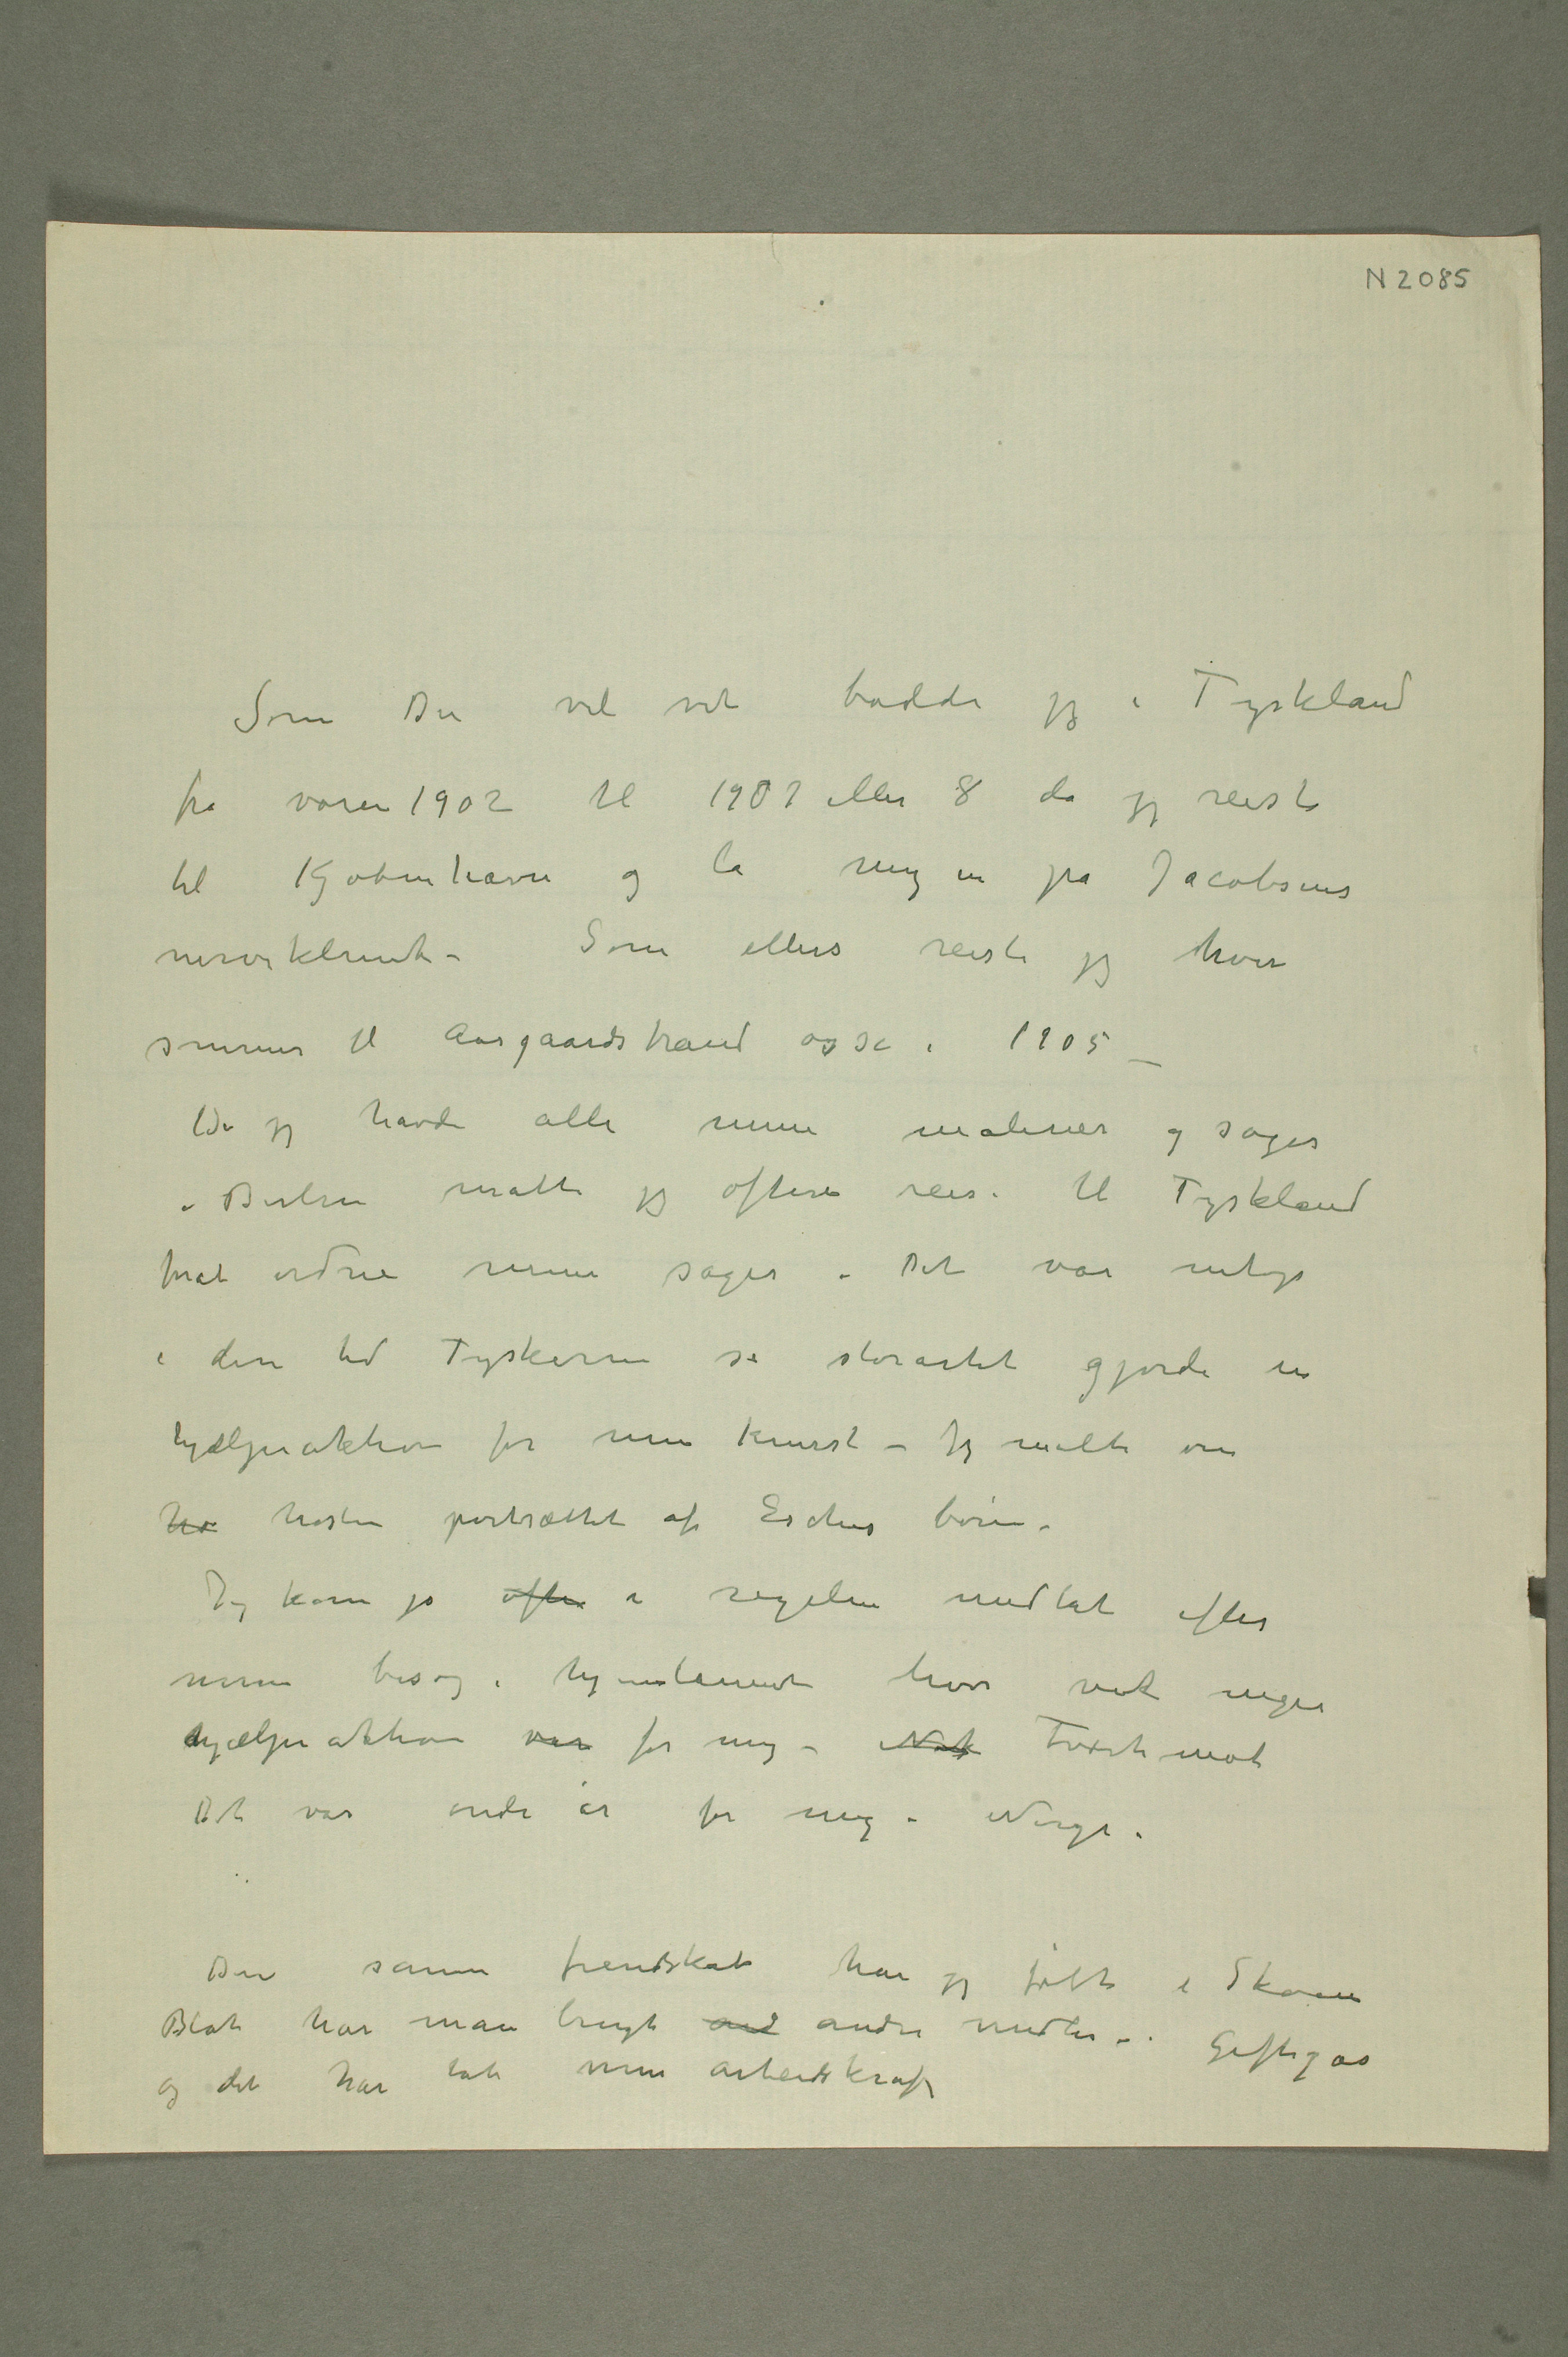 N 2085
Som Du vel vet bodde jeg i Tyskland
fra våren 1902 til 1907 eller 8 da jeg reiste
til Kjøbenhavn og la mig in på Jacobsens
nerveklinik – Som ellers reiste jeg hver
sommer til Aasgaardstrand også i 1905 –
Da jeg havde alle mine malerier og sager
i Berlin måtte jeg oftere reise til Tyskland
forat ordne mine sager – Det var netop
i den tid Tyskerne så storartet gjorde en
hjælpeaktion for min kunst – Jeg malte om
hø høsten portrættet af Esches børn –
Jeg kom jo ofte i regelen medtat efter
mine besøg i hjemlandet hvor vel ingen
hjælpeaktion var for mig – Nok Tvært imot
Det var onde år for mig i Norge.
Den samme fiendskab har jeg følt i Skøien
Blot har man brugt and andre midler – Giftgas
og det har tat min arbeidskraft